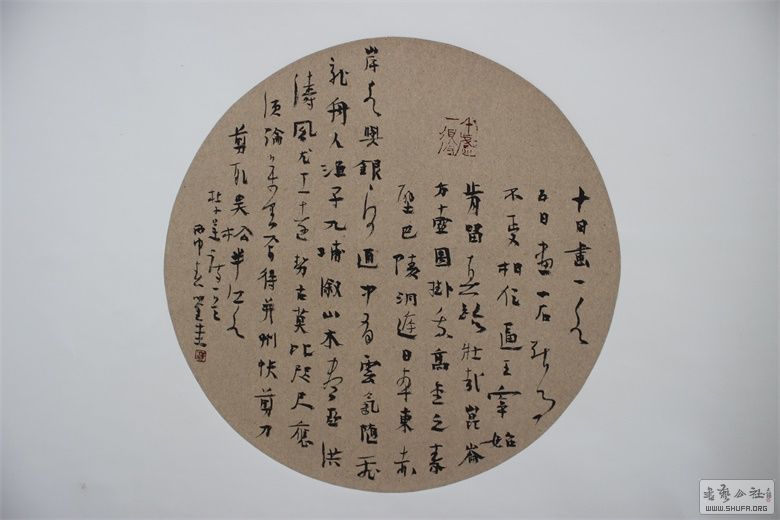 十日畫一水
五日畫一石能事
不受相促逼王宰始
肯留真跡壯哉崑崙
方壺圖掛君高堂之素
壁巴陵洞庭日本東赤
岸水與銀河通中有雲氣隨飛
龍舟人漁子入浦漵山木盡亞洪
濤風尤工遠勢古莫比咫尺應
須論萬里焉得并州快剪刀
剪取吳松半江水
丙申春
书艺公社
WWW.SHUFA.ORG